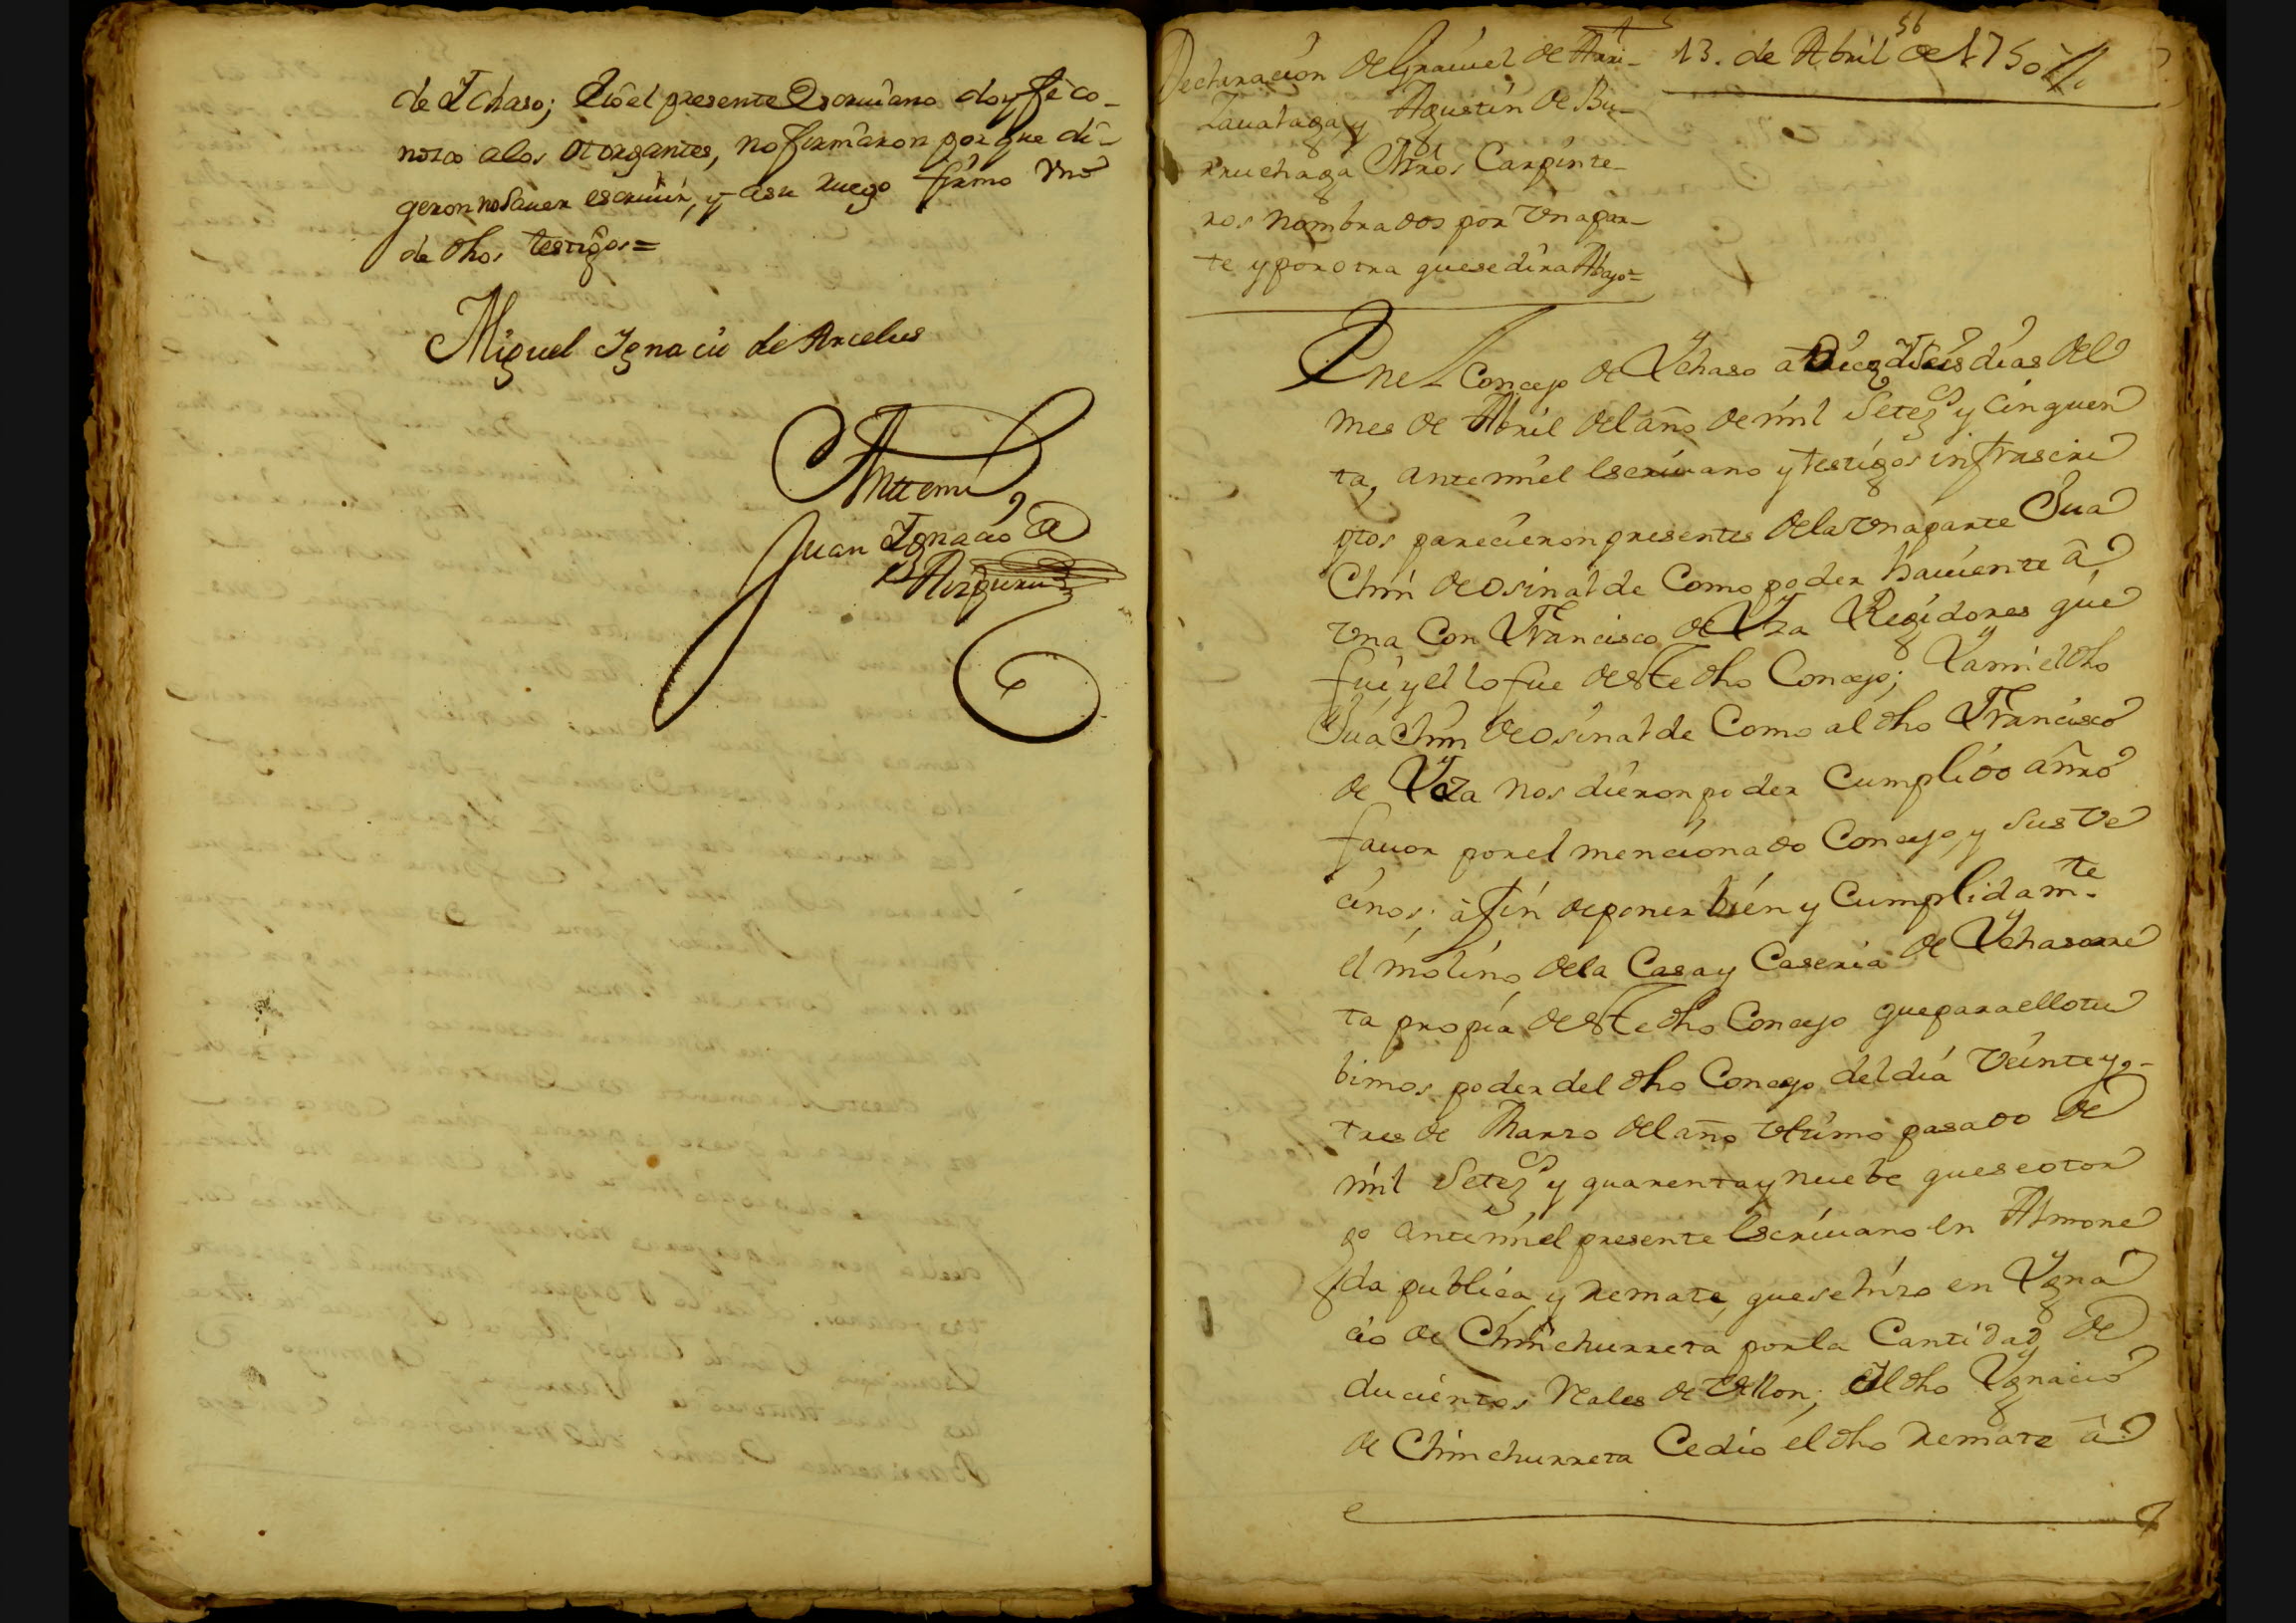 de Ychaso; E Yo el presente Escriuano doy fè co-
nozco alos otorgantes, no firmaron porque di-
geron no Sauer escriuir, y asu ruego firmo Vno
de dhos testigos=
Miguel Ygnacio de Arcelus
Antemi
Juan Ygnacio de
Aizpuru
56
Declaracion de Manuel de
Zauataga, y Agustin de Bu-
rruchaga Mros Carpinte-
ros nombrados por Vna par-
te y por otra que se dira Abajo=
13. de Abril de 1750
Enel Concejo de Ychaso a Diez dias del
mes de Abril del año de mil Setez.s y cinquen
ta, antemi el escriuano y testigos infrascri
ptos parecieron presentes dela Vna parte Jua
Chin de Osinalde Como poder hauiente â
Vna Con Francisco de Yza Regidores que
fui y el lo fue deste dho Concejo; Y ami el dho
Juachin de Osinalde Como al dho Francisco
de Yza nos dieron poder Cumplido anrô
fauor por el mencionado Concejo, y sus Ve
cinos; â fin de poner bien y Cumplidam.te
el molino dela Casa y Caseria de Ychasorre
ta propia deste dho Concejo que para ello tu
bimos poder del dho Concejo del dia Veinte y-
tres de Marzo del año Vltimo pasado de
mil Setez.s y quarenta y nuebe que se otor
gò antemi el presente Escriuano en Almone
da publica y remate, que se hizo en Ygna
cio de Chinchurreta por la Cantidad de
ducientos Reales de Vellon; El dho Ygnacio
de Chinchurreta Cedio el dho remate â